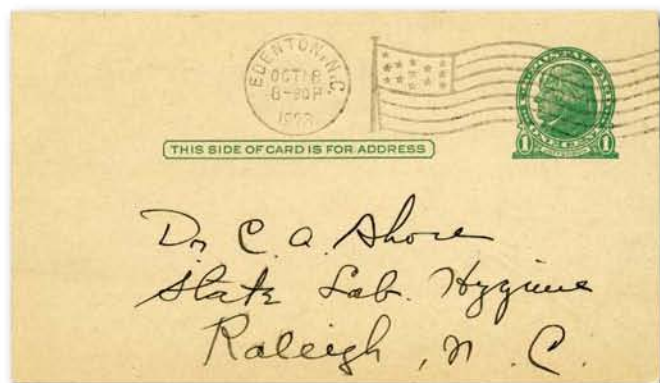 EDENTON, N.C.
OCT 18
8-30P
THIS SIDE OF CARD IS FOR ADDRESS
1 1
Dr C. A. Shore
State Lab. Hygiene
Raleigh, N. C.